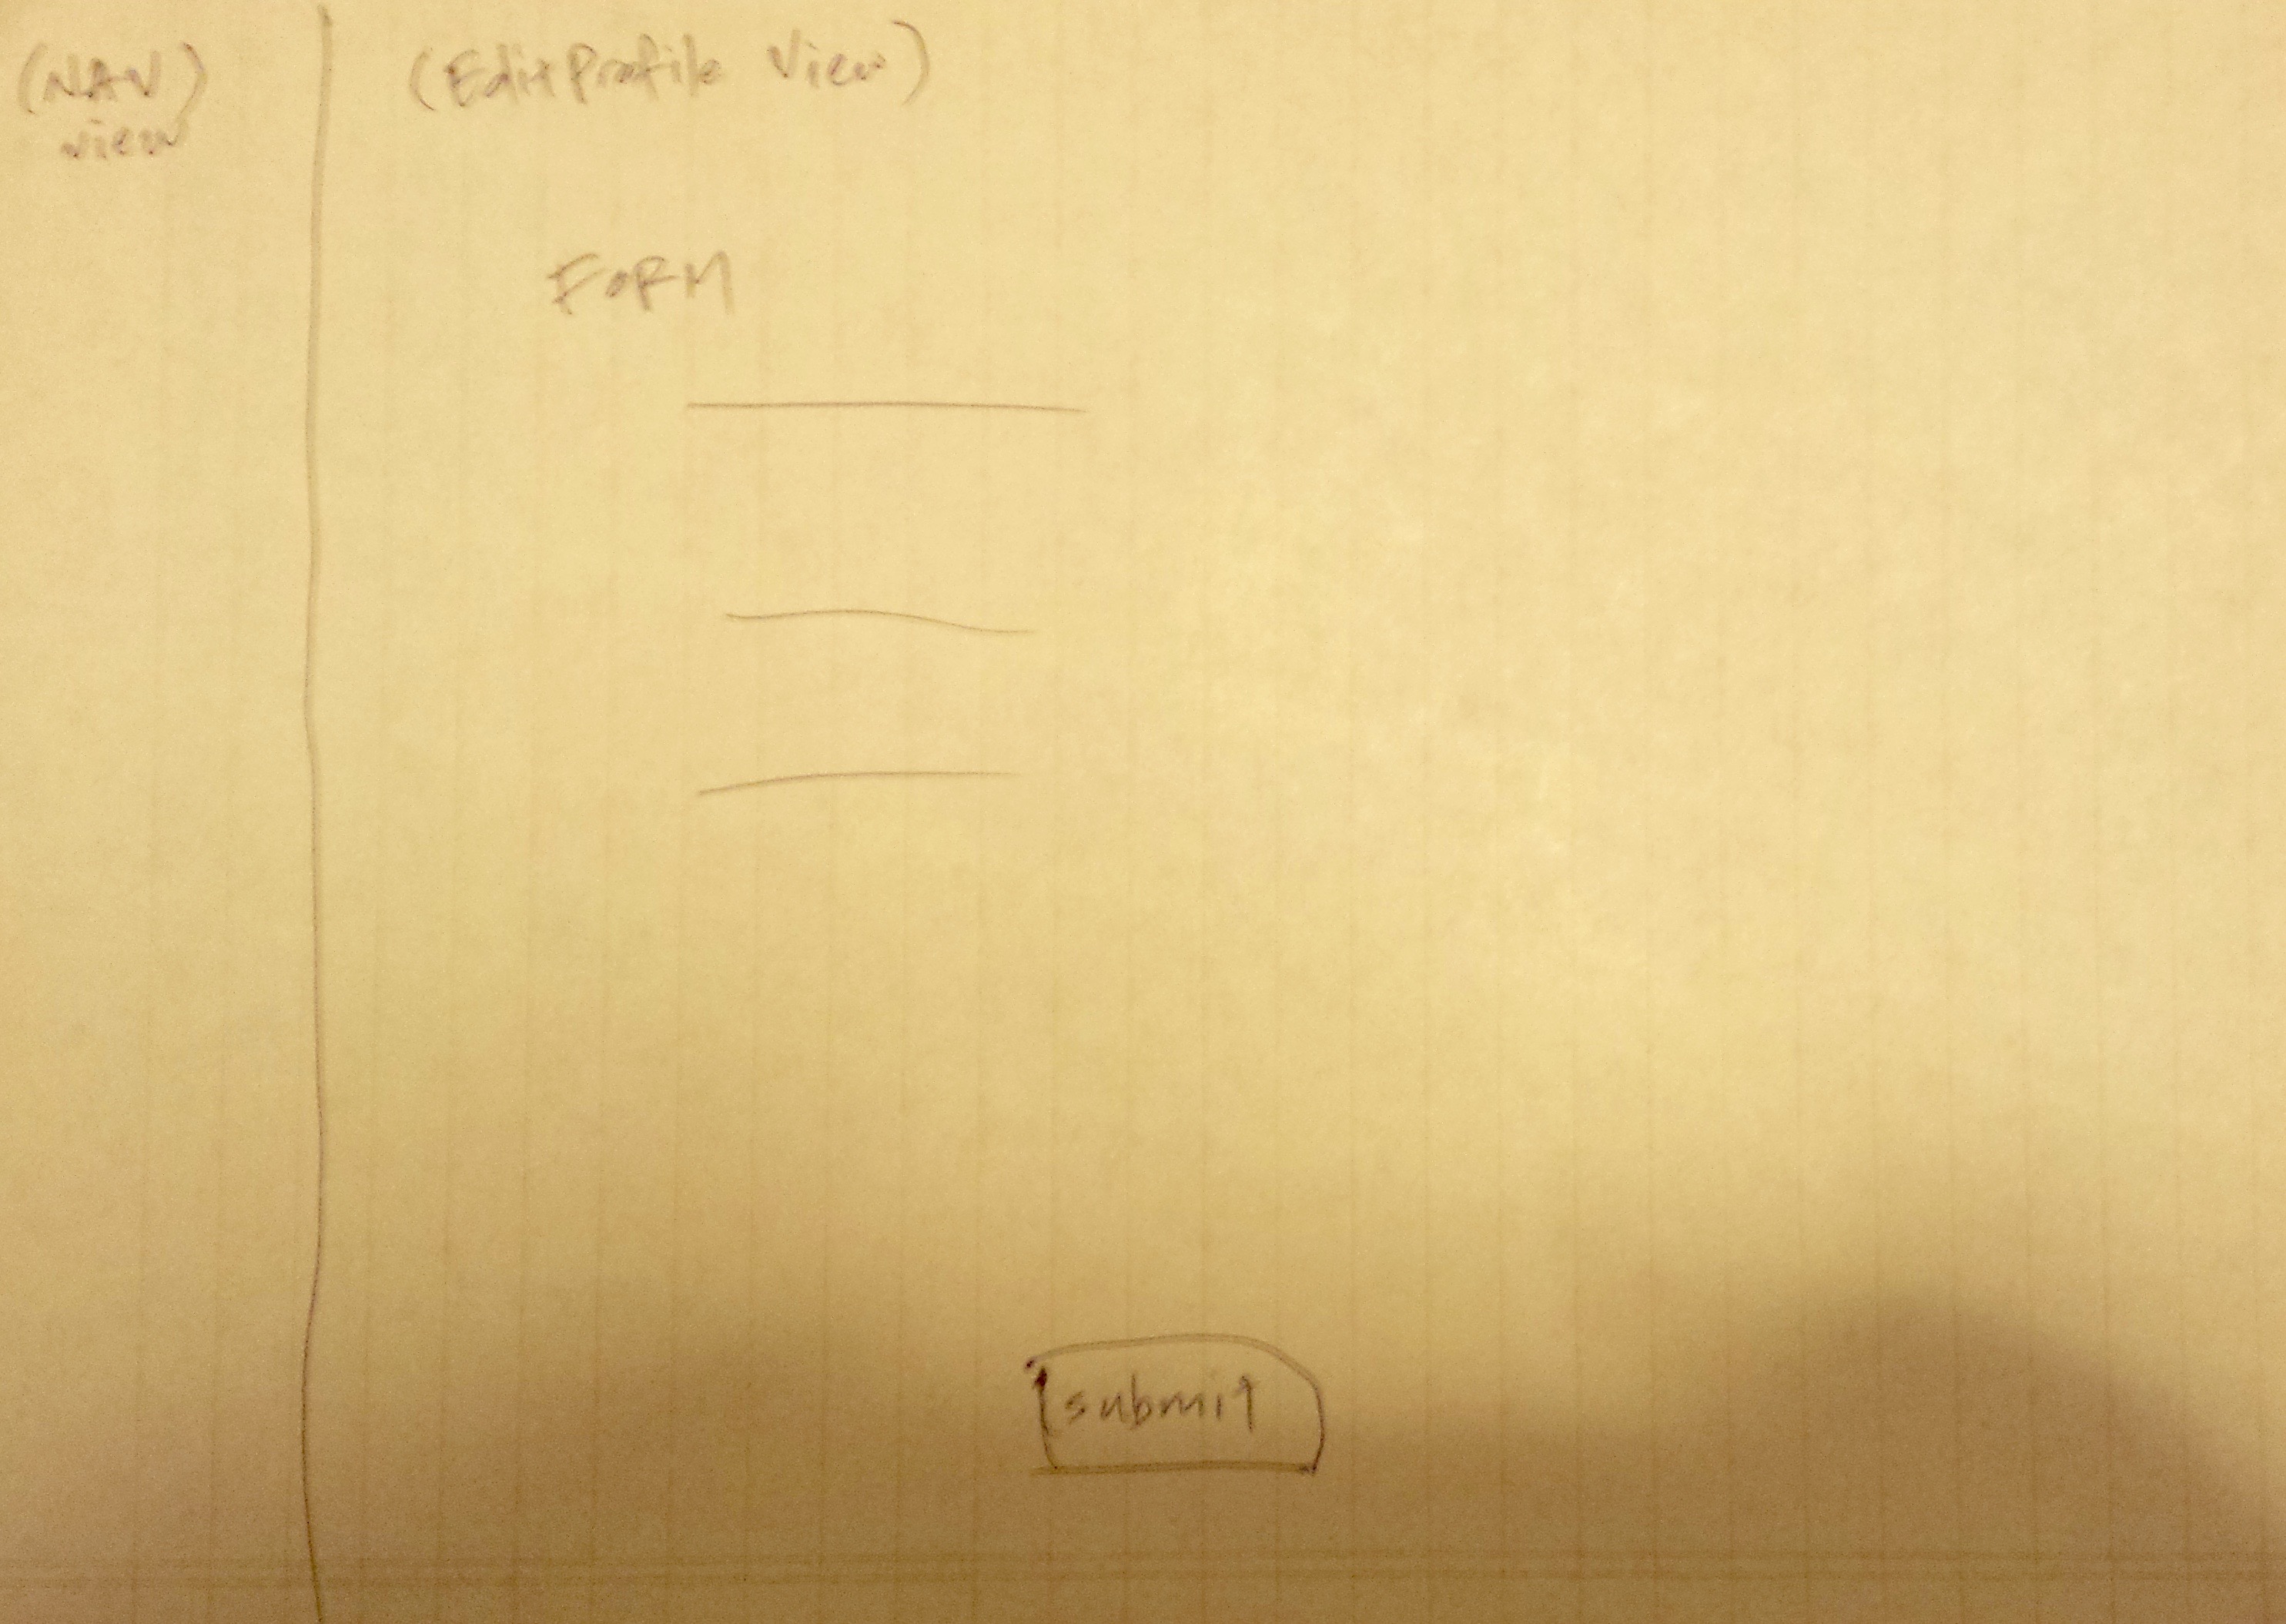 (NAV)
view
(EditProfile View)
FORM
submit